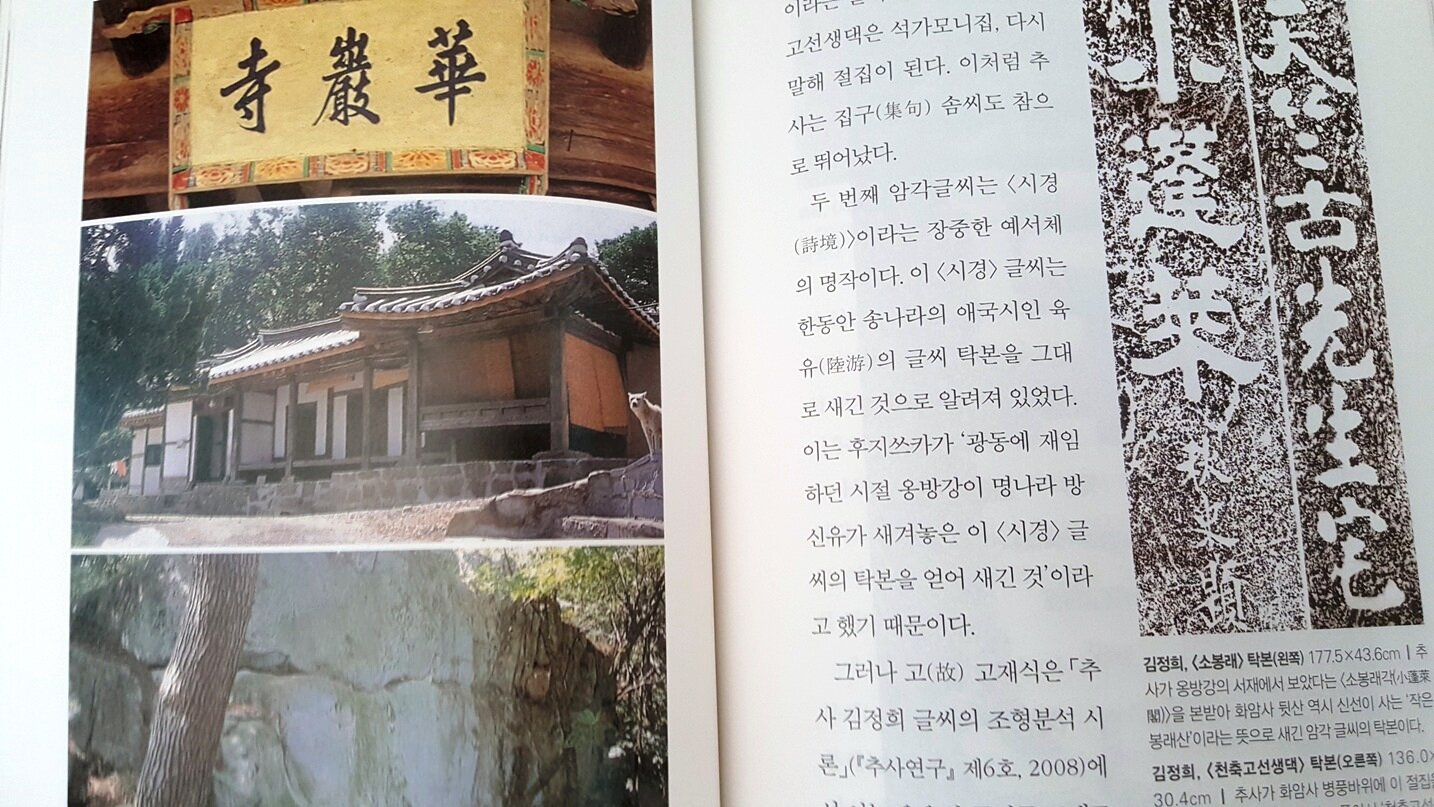 華巖寺
이라는
고선생댁은 석가모니집, 다시
말해 절집이 된다. 이처럼 추
사는 집구(集句) 솜씨도 참으
로 뛰어났다.
두 번째 암각글씨는 〈시경
(詩境)〉이라는 장중한 예서체
의 명작이다. 이 〈시경〉 글씨는
한동안 송나라의 애국시인 육
유(陸游)의 글씨 탁본을 그대
로 새긴 것으로 알려져 있었다.
이는 후지쓰카가 ‘광동에 재임
하던 시절 옹방강이 명나라 방
신유가 새겨놓은 이 〈시경〉 글
씨의 탁본을 얻어 새긴 것’이라
고 했기 때문이다.
그러나 고(故) 고재식은 「추
사 김정희 글씨의 조형분석 시
론」(『추사연구』 제6호, 2008)에
天竺古先生宅
小蓬萊
秋史題
김정희, 〈소봉래〉 탁본(왼쪽) 177.5×43.6cm | 추
사가 옹방강의 서재에서 보았다는 〈소봉래각(小蓬萊
閣)〉을 본받아 화암사 뒷산 역시 신선이 사는 ‘작은
봉래산’이라는 뜻으로 새긴 암각 글씨의 탁본이다.
김정희, 〈천축고선생댁〉 탁본(오른쪽) 136.0×
30.4cm | 추사가 화암사 병풍바위에 이 절집을